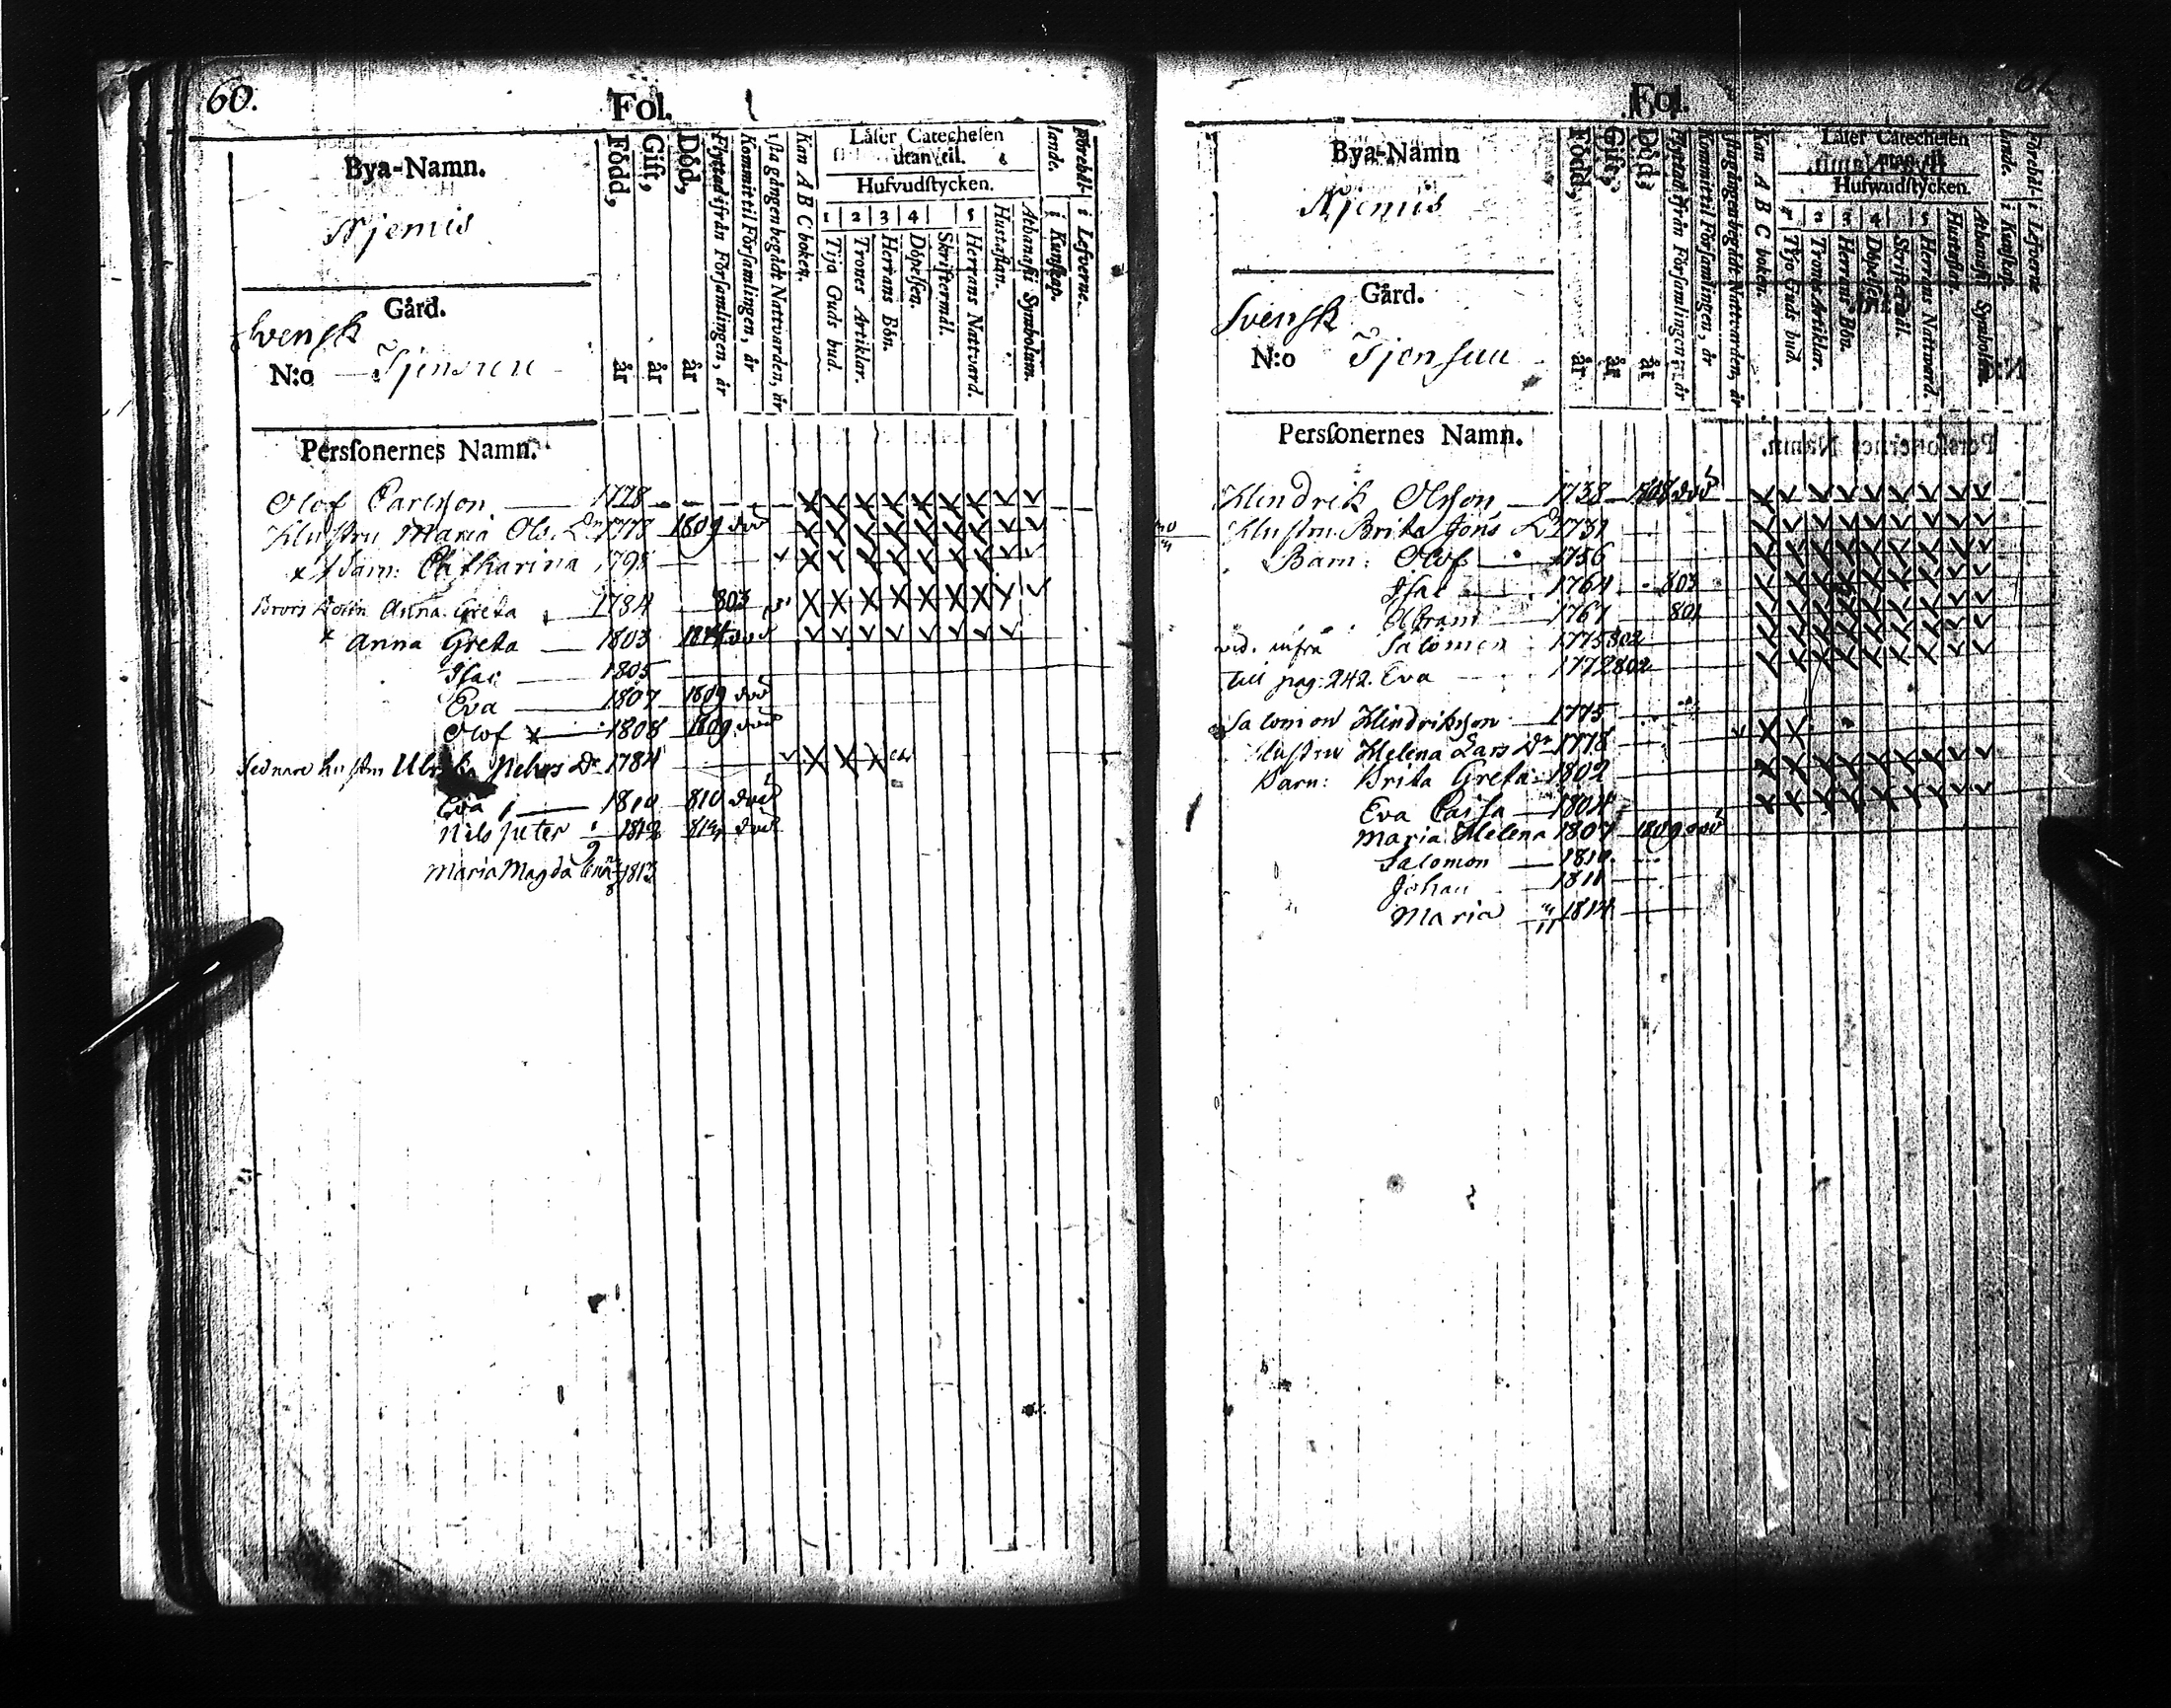 60.
Fol.
Bya-Namn.
Njemis
Gård.
Svensk
N:o
Perſonernes Namn.
Född, år
Gift, år
Död, år
Flyttad ifrån Förſamlingen, år
Kommit til Förſamlingen, år
1ſta gången begådt Nattvarden, år
Kan A B C boken.
Läſer Catecheſen
utan til.
Hufvudſtycken.
1 2 3 4 5
Tijo Guds bud.
Trones Artiklar.
Herrans Bön.
Döpelſen.
Skriftermål.
Herrans Nattvard.
Huſtaflan.
Athanaſii Symbolum.
Förehål-
lande.
i Kunſkap.
i Lefverne.
Olof Carlsson 1778
Hustru Maria Ols. Dr 1778 1809 död
Barn: Catharina 1798
Anna Greta 1784 803
Anna Greta 1803 död
Isac 1805
Eva 1807 1809 död
Olof 1808 1809 död
Sednare hustru Nehrs Dr 1784
Eva 1810 810 död
Nils Peter 1812 död
Maria Magdalena 1813
Fol.
Bya-Namn
Njemis
Gård.
Svensk
N:o
Perſonernes Namn.
Född, år
Gift, år
Död, år
Flyttad ifrån Förſamlingen, år
Kommit til Förſamlingen, år
1ſta gången begådt Nattvarden, år
Kan A B C boken.
Läſer Catecheſen
utan til
Hufwudſtycken.
2 3 4 5
Tijo Guds bud.
Trones Artiklar.
Herrans Bön.
Döpelſen.
Skriftermål.
Herrans Nattward.
Huſtaflan.
Athanaſii Symbolum.
Förehål-
lande.
i Kunſkap.
i Lefverne
Hindrik Olsson 1738 död
Hustru Brita Jöns Dr 1731
Barn: Olof 1756
Isac 1764 803
Abram 1767 801
vid. infra Salomon 1775 802
Till pag. 242. Eva 1772 802
Salomon Hindriksson 1775
Hustru Helena Lars Dr 1778
Barn: Brita Greta 1802
Eva Caisa 1804
Maria Helena 1807 1809 död
Salomon 1810
Johan 1811
Maria 1814